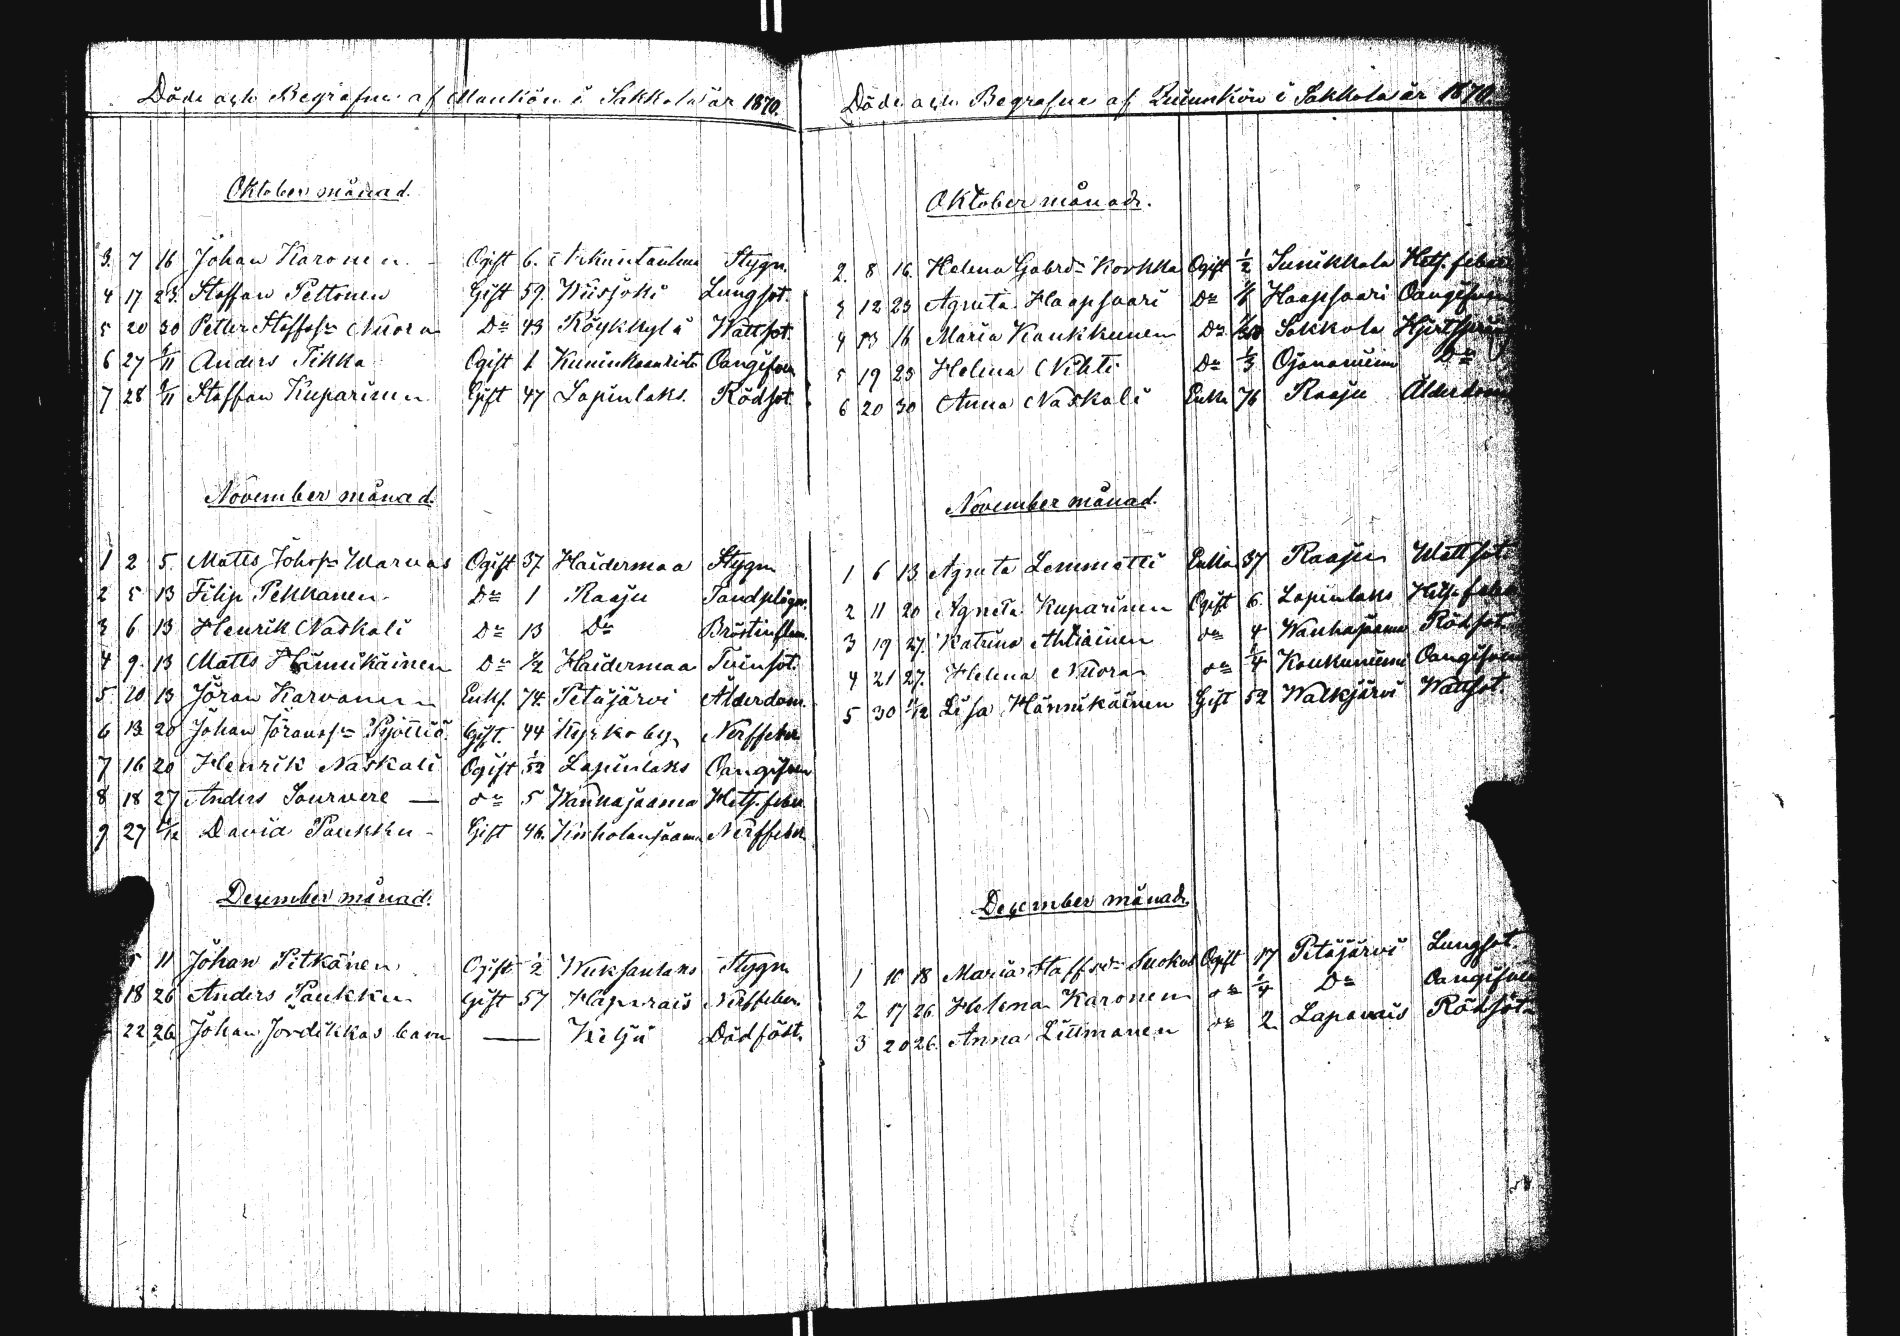 Döde och Begrafne af Mankön i Sakkola år 1870.
Oktober månad.
3. 7 16 Johan Karonen Ogift 6. Stygn.
4 17 23. Staffan Peltonen Gift 59. Wiisjoki Lungsot.
5 20 30 Petter Staffss. Nuora Do 43 Röykkylä Wattsot.
6 27 6/11 Anders Tikka Ogift 1 Kuninkaanristi Oangifven
7 28 6/11 Staffan Kuparinen Gift 47 Lapinlaks. Rödsot.
November månad.
1 2 5. Matts Johss. Warvas Ogift 37 Haidermaa Stygn
2 5 13 Filip Pekkanen Do 1 Raaju Tandplågor.
3 6 13 Henrik Naskali Do 13 Do Bröstinflam.
4 9. 13 Matts Hännikäinen Do 1/2 Haidermaa Tvinsot.
5. 10 13 Jöran Karvanen Enkl. 74. Petäjärvi Ålderdom.
6 13 20 Johan Göranss. Pyöttiö Gift. 44 Kyrkoby Nerffeber
7 16 20 Henrik Naskali Ogift 1/52 Lapinlaks Oangifven
8 18 27 Anders Sourvere — do 5 Wanhajaama Hets. feber
9. 27 4/12 David Paukku Gift 46. Kiiholanjaama Nerffeber
December månad.
5 11 Johan Pitkänen Ogift 1/2 Wuksanlaks Stygn
18 26 Anders Paukku Gift 57 Haparais Nerffeber.
22 26 Johan Jordikkas barn — Kiljü Dödföst.
Döde och Begrafne af Quinnkön i Sakkola år 1870.
Oktober månad.
2. 8 16. Helena Gabrd. Korkka Ogift 1/2 Sunikkala Hets. feber
3 12 23 Agneta Haapsaari Do Haapsaari Oangifven
4 13 16 Maria Kaukkunen Do Sakkola
5 19 23 Helena Nihti Do 1/3 Ojananiemi Do
6 20 30 Anna Naskali Enka 76 Raaju Ålderdom
November månad.
1 6 13 Agneta Lemmetti Enka 37 Raaju Wattsot
2 11 20 Agneta Kuparinen Ogift 6. Lapinlaks Hets. feber
3 19 27. Katrina Ahtiainen do 4 Wanhajaama Rödsot.
4 21 27. Helena Nuora do 1/4 Koukuniemi Oangifven
5 30 4/12 Lisa Hännikäinen Gift 52 Walkjärvi Wattsot.
December månad.
1 10 18 Maria Staffsd. Suokas Ogift 17 Petäjärvi Lungsot.
2 17 26. Helena Karonen do 1/4 Do Oangifven
3 20 26. Anna Littmanen do 2 Lapanais Rödsot